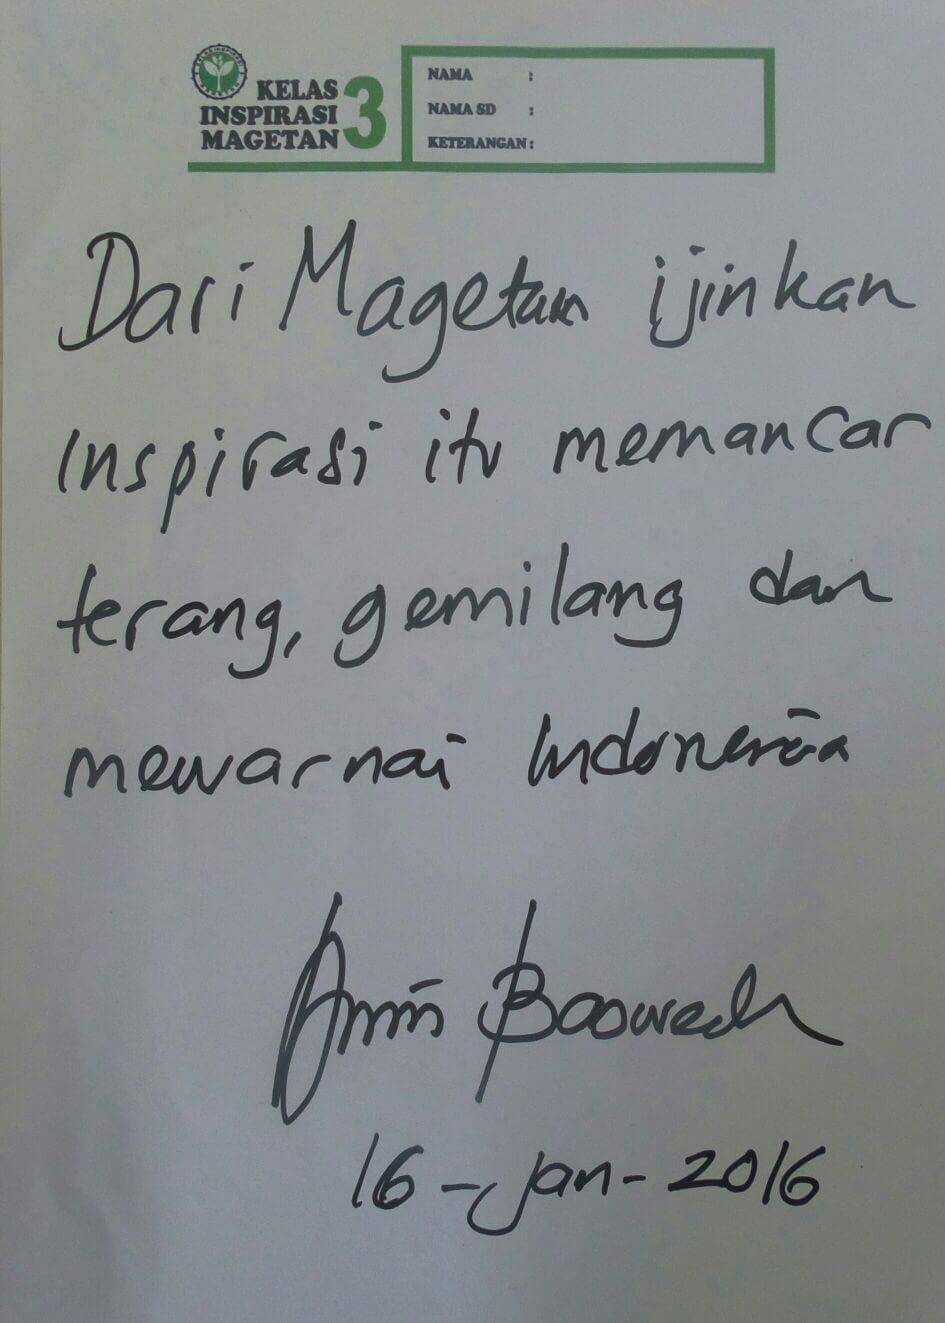 KELAS INSPIRASI
KELAS
INSPIRASI
MAGETAN 3
NAMA :
NAMA SD :
KETERANGAN :
Dari Magetan ijinkan
inspirasi itu memancar
terang, gemilang dan
mewarnai Indonesia
Anies Baswedan
16-Jan-2016